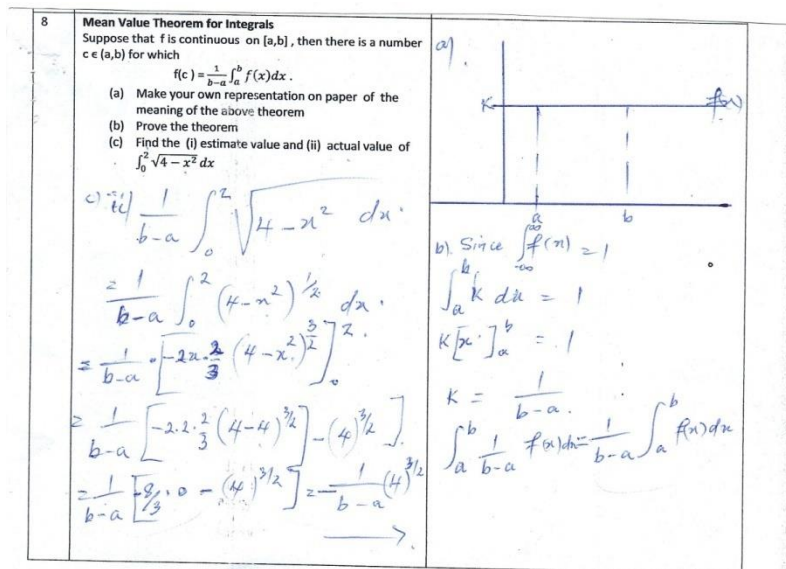 8
Mean Value Theorem for Integrals
Suppose that f is continuous on [a,b] , then there is a number
c ϵ (a,b) for which
f(c ) = 1/(b−a) ∫_a^b f(x)dx .
(a) Make your own representation on paper of the
meaning of the above theorem
(b) Prove the theorem
(c) Find the (i) estimate value and (ii) actual value of
∫_0^2 √(4 – x²) dx
c) ii) 1/(b-a) ∫_0^2 √(4-x²) dx.
= 1/(b-a) ∫_0^2 (4-x²)^(1/2) dx.
= 1/(b-a) · [-2x.2/3 (4-x²)^(3/2)]_0^2.
= 1/(b-a) [-2.2.2/3 (4-4)^(3/2)] - (4)^(3/2)].
= 1/(b-a) [-8/3.0 - (4)^(3/2)] = -1/(b-a) (4)^(3/2)
a).
K
f(x)
a
b
b). Since ∫_-∞^∞ f(x) = 1
∫_a^b K dx = 1
K[x.]_a^b = 1
K = 1/(b-a).
∫_a^b 1/(b-a) f(x)dx = 1/(b-a) ∫_a^b f(x)dx